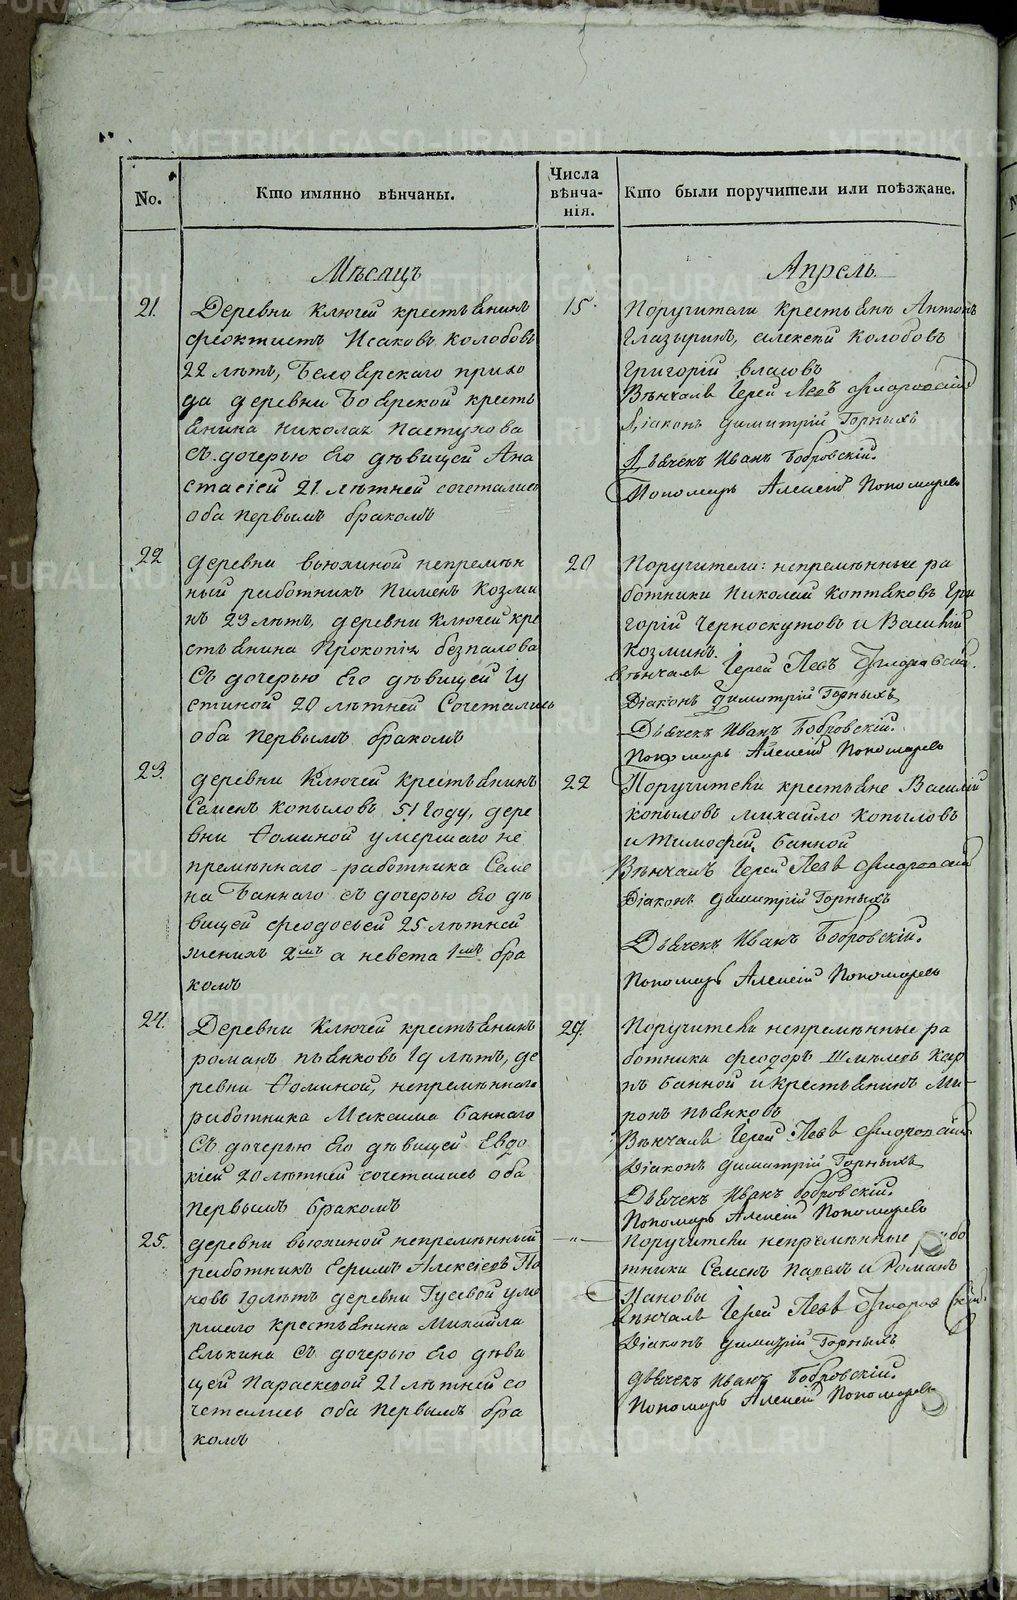 No.
Кто имянно вѣнчаны.
Числа
вѣнча-
нія.
Кто были поручители или поѣзжане.
Мѣсяцъ
Апрель
21.
Деревни Ключей крестьянинъ
Феоктистъ Исаковъ Колобовъ
22 лѣтъ, Белоярскаго прихо
да деревни Боярской кресть
янина Николая Пастухова
съ дочерью Его дѣвицей Ана
стасіей 21 лѣтней сочетались
оба первымъ бракомъ
15
Поручители крестьяне Антонъ
Глазыринъ, Алексѣй Колобовъ
Григорій Власовъ
Вѣнчалъ Іерей Левъ Флоровскій
Діаконъ Димитрій Горныхъ
Дьячекъ Иванъ Бобровскій.
Пономарь Алексѣй Пономаревъ
22
деревни Вьюхиной непремѣн
ный работникъ Пименъ Козми
нъ 23 лѣтъ, деревни Ключей кре
стьянина Прокопія Безпалова
Съ дочерью Его дѣвицей Іу
стиной 20 лѣтней Сочетались
оба первымъ бракомъ
20
Поручители: непремѣнные ра
ботники Николай Коптяковъ Гри
горій Черноскутовъ и Василій
Козминъ.
Вѣнчалъ Іерей Левъ Флоровскій.
Діаконъ Димитрій Горныхъ
Дьячекъ Иванъ Бобровскій.
Пономарь Алексѣй Пономаревъ
23.
деревни Ключей крестьянинъ
Семенъ Копыловъ 51 году, дере
вни Фоминой умершаго не
премѣннаго работника Семе
на Баннаго съ дочерью Его дѣ
вицей Феодосьей 25 лѣтней
женихъ 2мъ а невеста 1мъ бра
комъ
22
Поручители крестьяне Василій
Копыловъ Михайло Копыловъ
и Тимофей Банной
Вѣнчалъ Іерей Левъ Флоровскій
Діаконъ Димитрій Горныхъ
Дьячекъ Иванъ Бобровскій.
Пономарь Алексѣй Пономаревъ
24.
Деревни Ключей крестьянинъ
Романъ Пьянковъ 19 лѣтъ, де
ревни Фоминой, непремѣннаго
работника Максима Баннаго
Съ дочерью Его дѣвицей Евдо
кіей 20 лѣтней сочетались оба
первымъ бракомъ
29.
Поручители непремѣнные ра
ботники Феодоръ Шмелевъ Кар
пъ Банной и крестьянинъ Ми-
ронъ Пьянковъ
Вѣнчалъ Іерей Левъ Флоровскій
Діаконъ Димитрій Горныхъ
Дьячекъ Иванъ Бобровскій.
Пономарь Алексѣй Пономаревъ
25.
деревни Вьюхиной непремѣнный
работникъ Ефимъ Алексіевъ Па
новъ 19 лѣтъ деревни Гусевой уме
ршаго крестьянина Михайла
Елькина съ дочерью Его дѣви
цей Параскевой 21 лѣтней со
четались оба первымъ бра
комъ
—"—
Поручители непремѣнные рабо
тники Семенъ Павелъ и Романъ
Пановы
Вѣнчалъ Іерей Левъ Флоровскій.
Діаконъ Димитрій Горныхъ
Дьячекъ Иванъ Бобровскій.
Пономарь Алексѣй Пономаревъ
METRIKI.GASO-URAL.RU